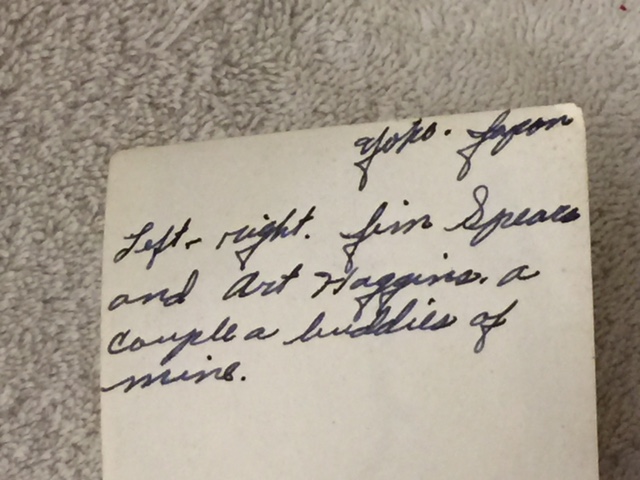 Yoko. Japan
Left - right. Jim Spears
and Art Haggins. a
couple a buddies of
mine.